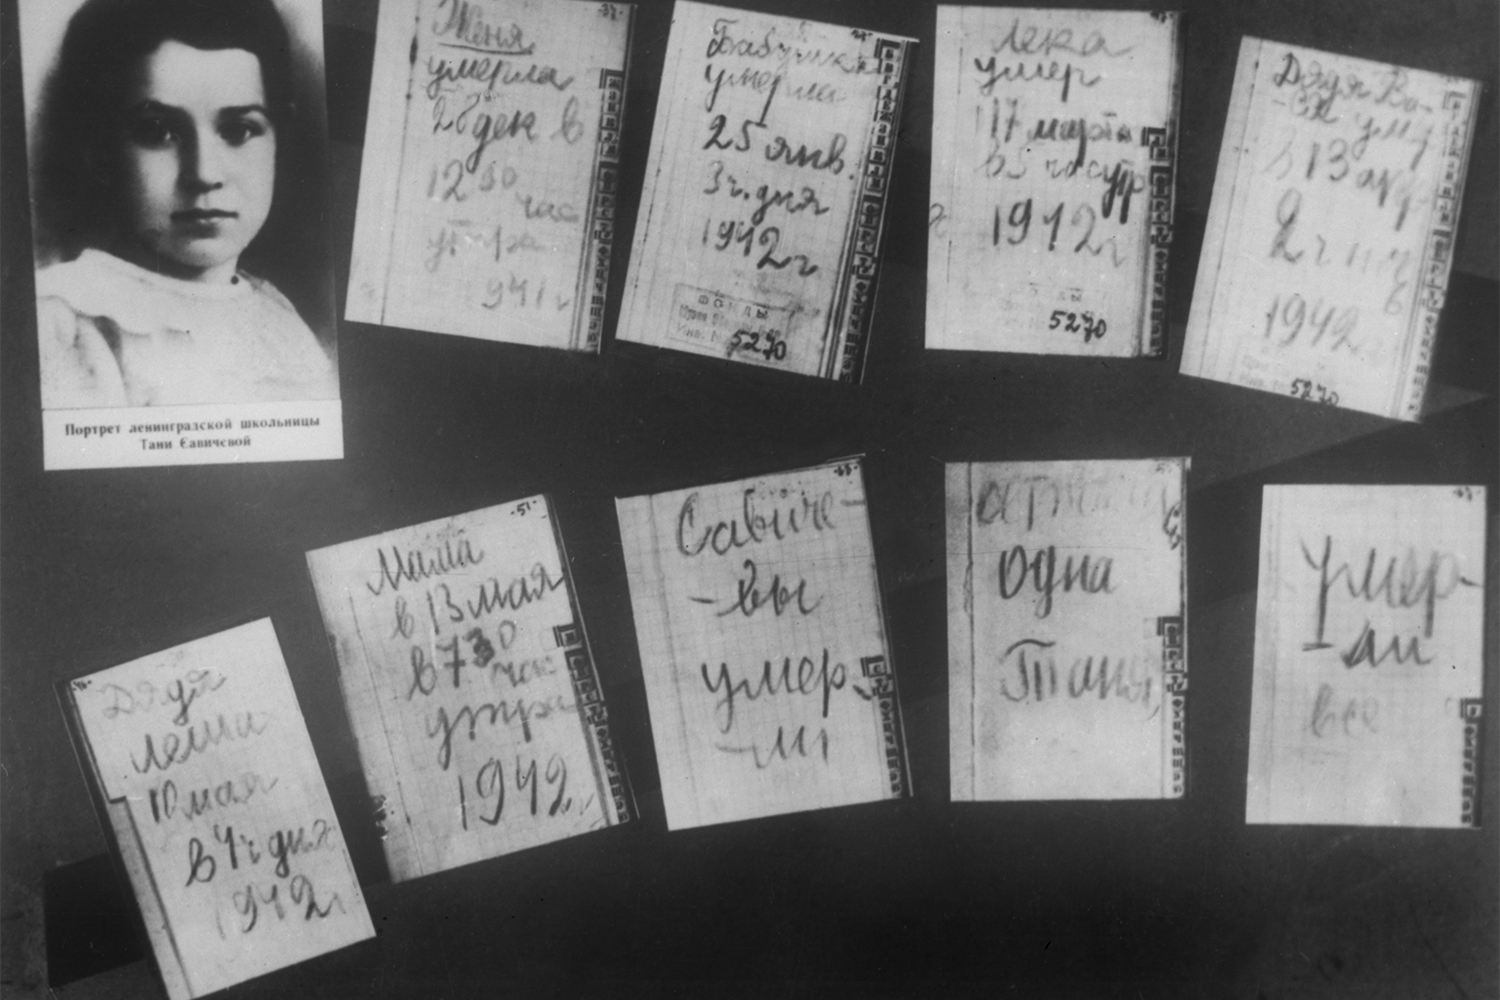 Портрет ленинградской школьницы
Тани Савичевой
Женя
умерла
28 дек в
12 30
час
утра
941 г
Бабушка
умерла
25 янв.
3 ч. дня
1942 г
ФОНДЫ
5270
Лека
умер
17 марта
в 5 час утр
1942 г
5270
Дядя Ва-
-ся ум
в 13 апр
2 ч ноч
1942
5270
Дядя
Леша
10 мая
в 4 ч дня
1942 г
-51-
Мама
в 13 мая
в 7 30
час
утра
1942 г
Савиче-
-вы
умер
-ли
Осталась
одна
Таня
Умер-
-ли
все